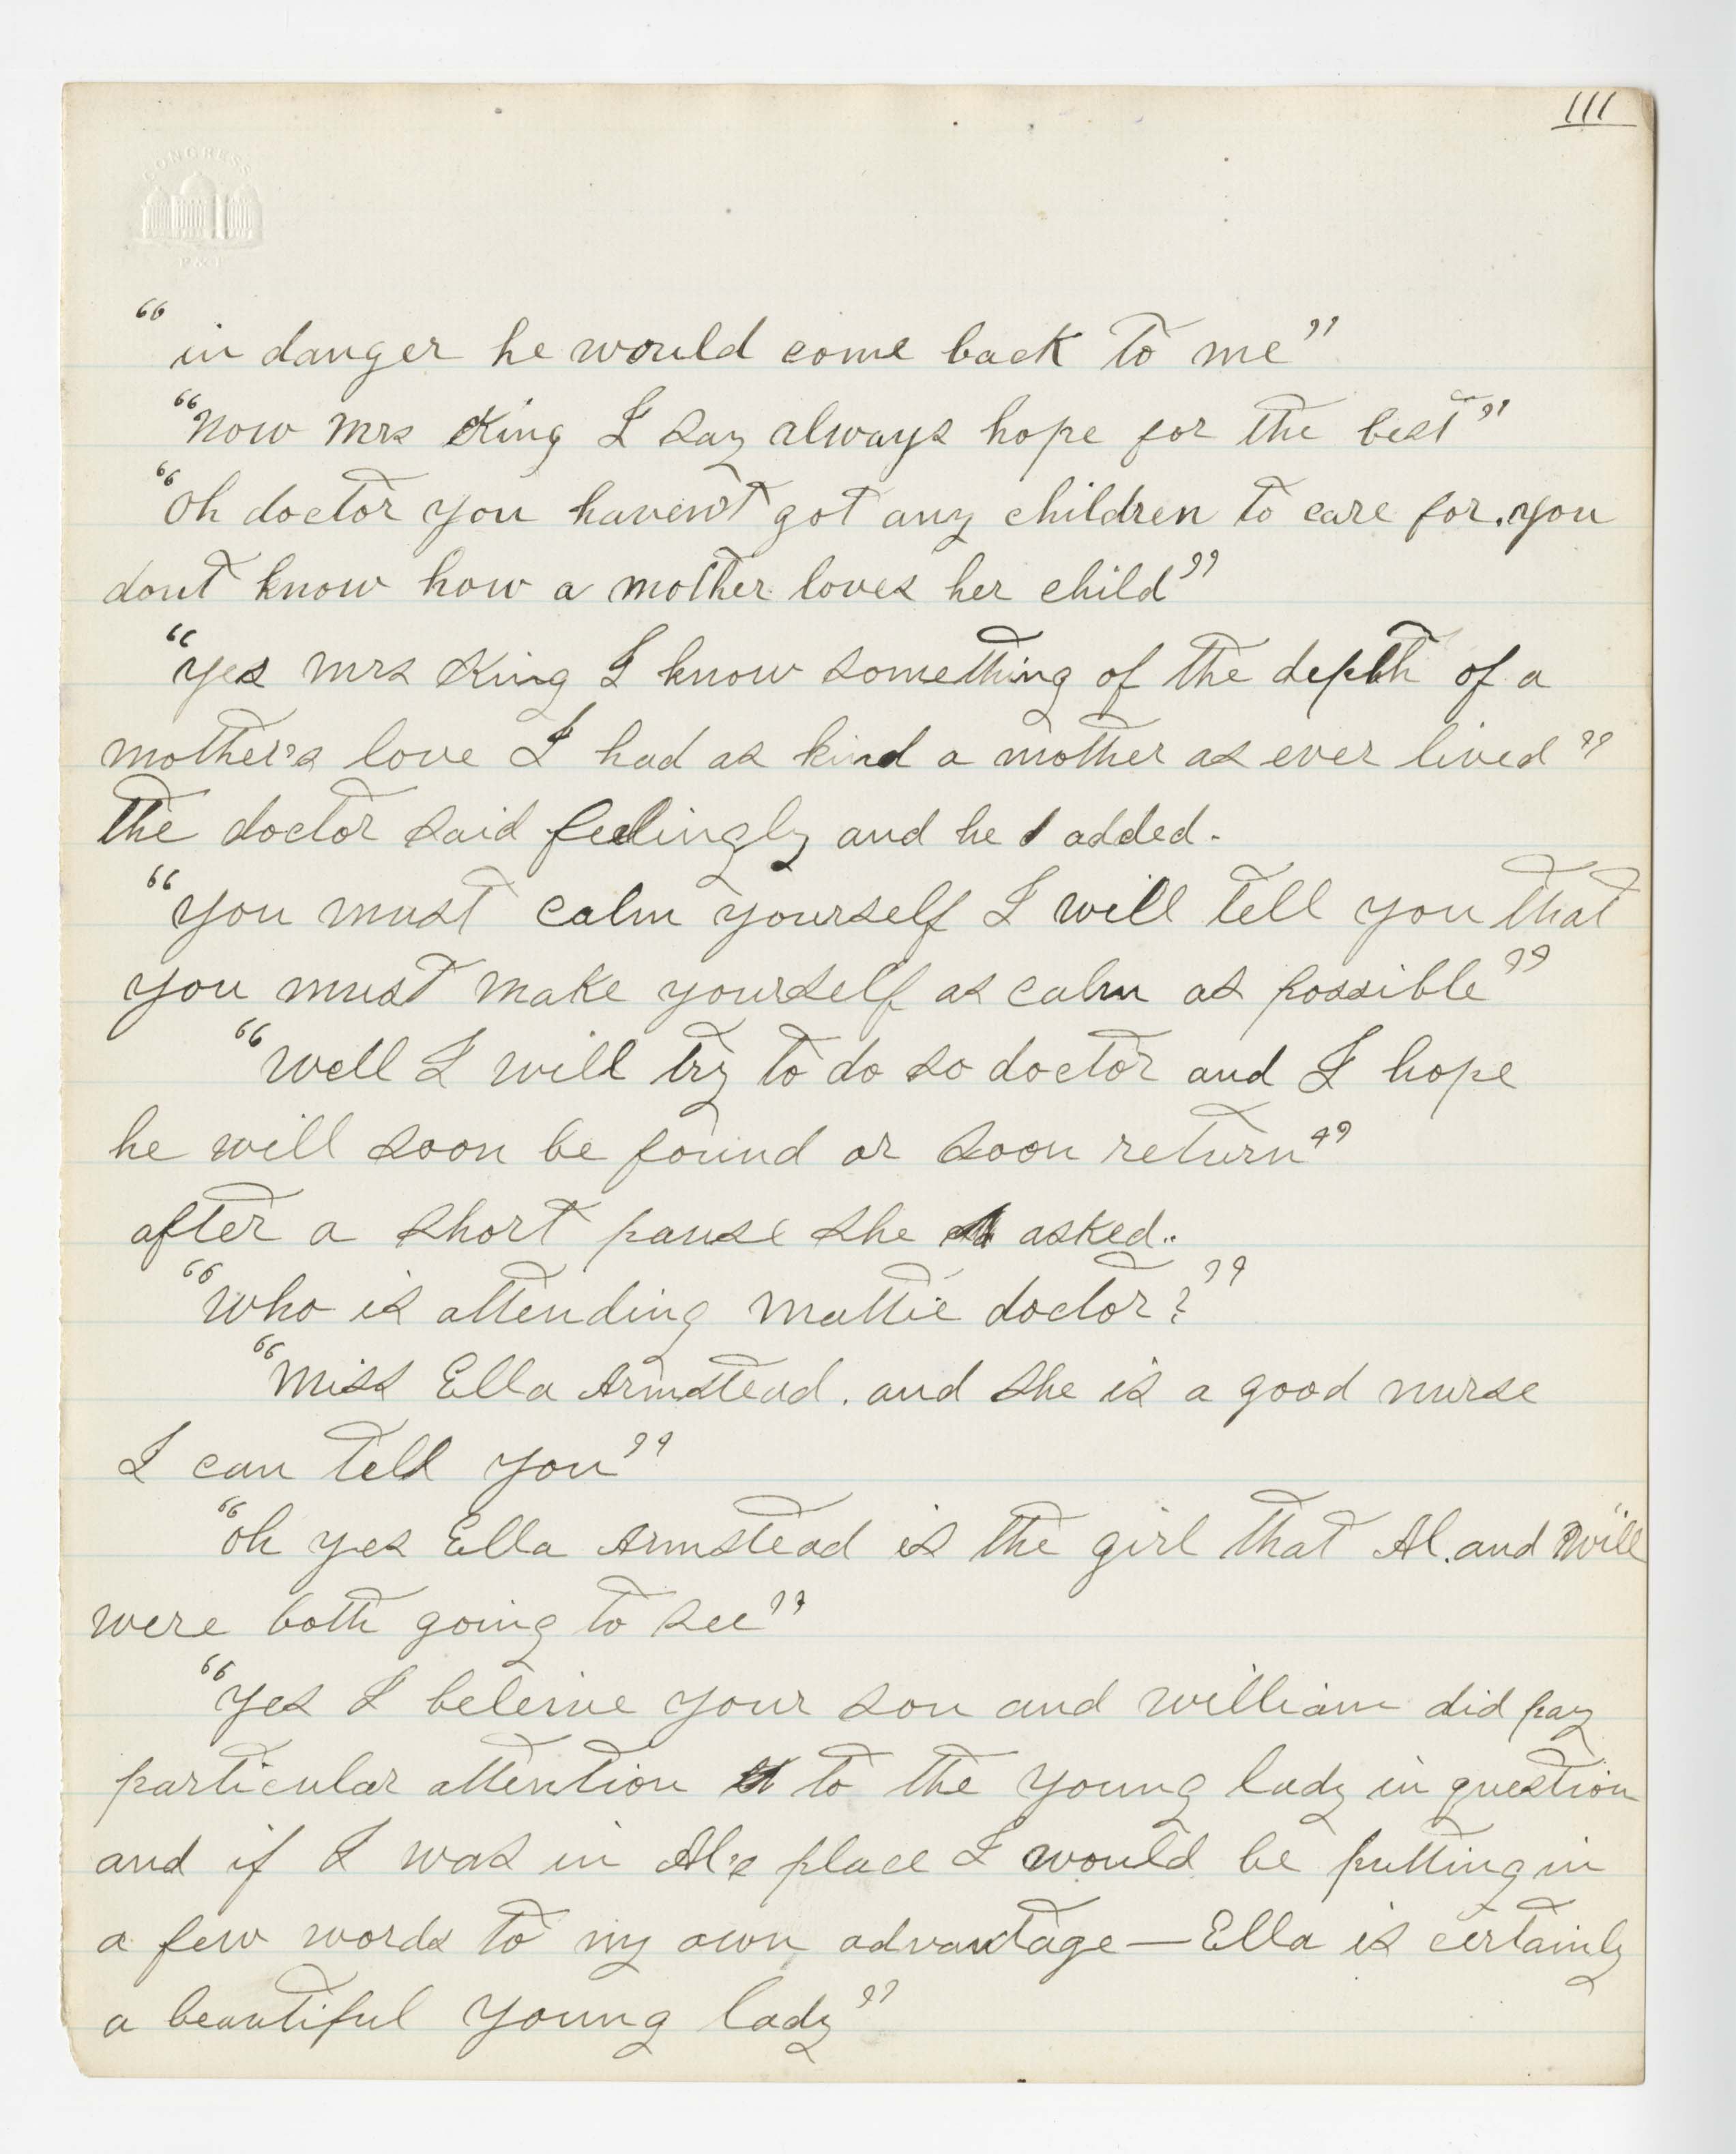 111
CONGRESS
P & P
“in danger he would come back to me”
“Now Mrs King I say always hope for the best”
“Oh doctor you haven't got any children to care for. you
dont know how a mother loves her child”
“Yes Mrs King I know something of the depth of a
mother's love I had as kind a mother as ever lived”
the doctor said feelingly and he added.
“You must calm yourself I will tell you that
you must make yourself as calm as possible”
“Well I will try to do so doctor and I hope
he will soon be found or soon return”
after a short pause she asked..
“Who is attending Mattie doctor?”
“Miss Ella Armstead. and she is a good nurse
I can tell you”
“Oh yes Ella Armstead is the girl that Al. and Will
were both going to see”
“Yes I beleive your son and william did pay
particular attention to the young lady in question
and if I was in Al's place I would be putting in
a few words to my own advantage—Ella is certainly
a beautiful young lady”